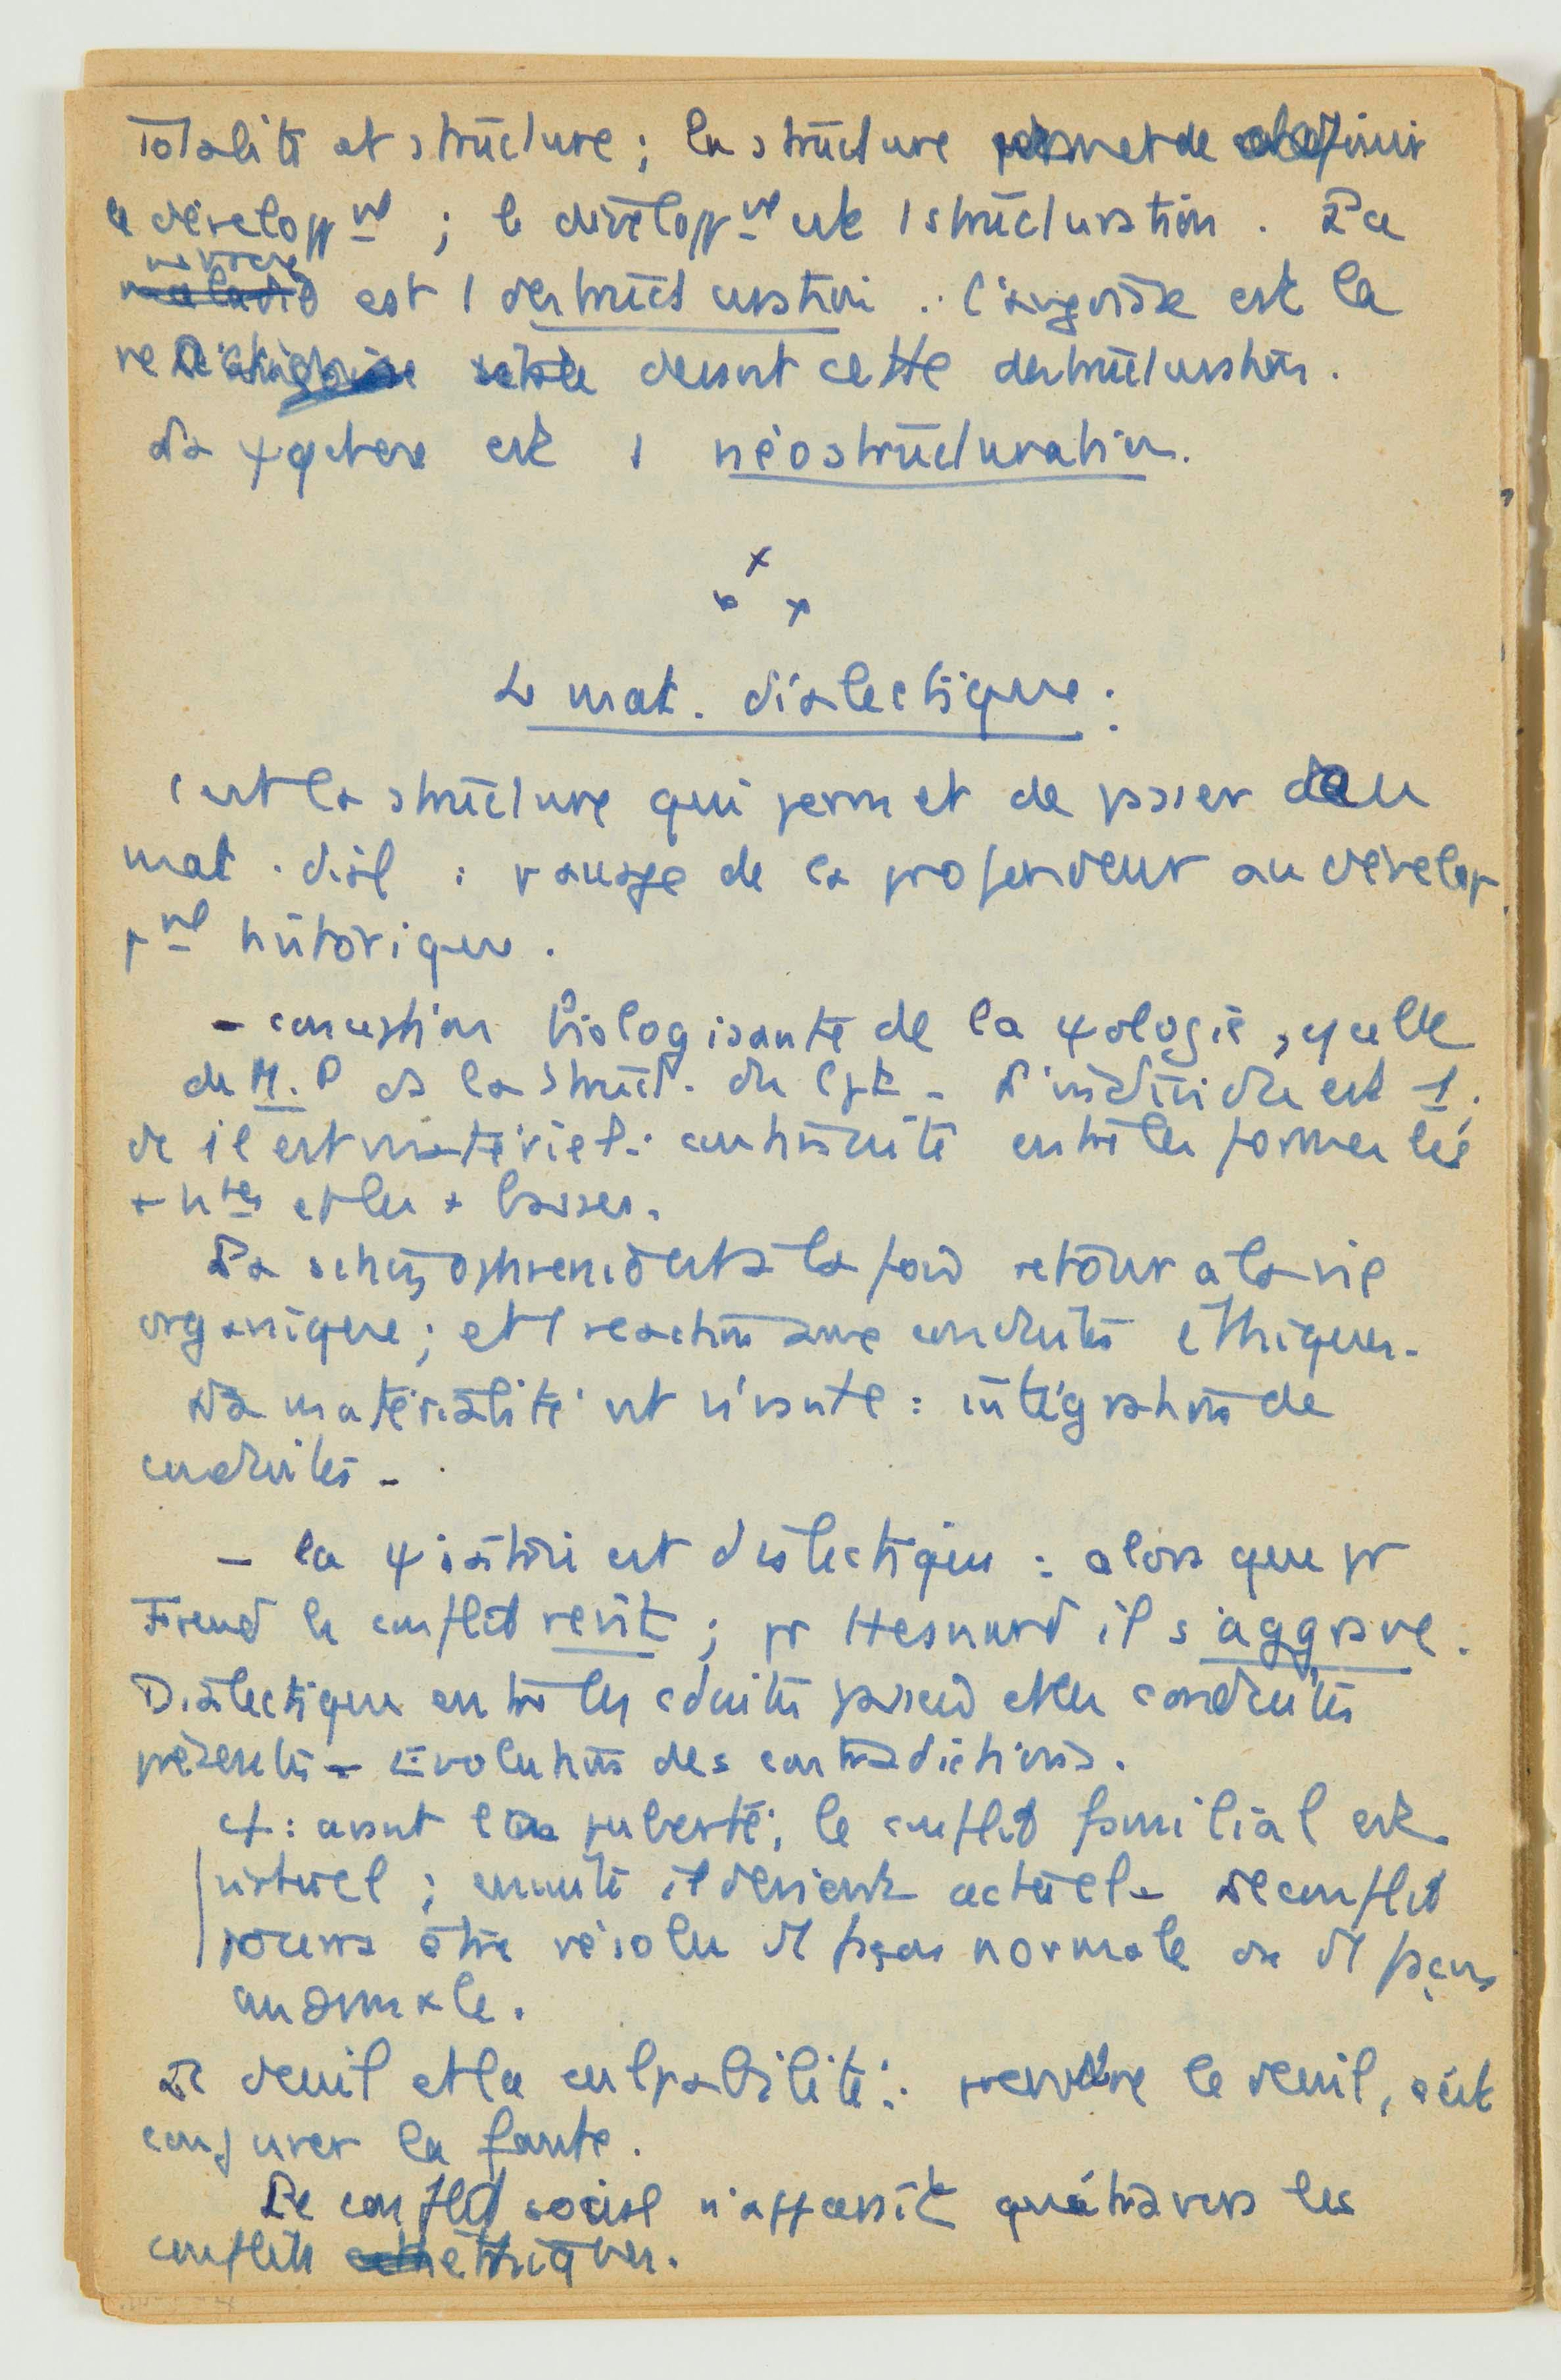 Totalité et structure ; la structure permet de définir
le développnt ; le développnt est 1 structuration . La
névrose est 1 destructuration . l'angoisse est la
devant cette destructuration.
La ψqthere est 1 néostructuration.
x
x x
Le mat. dialectique :
C'est la structure qui permet de passer au
mat. dial : passage de la profondeur au dévelop
pnt historique .
- conception biologisante de la ψologie , celle
de M.P ds la Struct. du Cpt - L'individu est 1.
et il est matériel : continuité entre les formes les
+ htes et les + basses.
La schizophrénie est à la fois retour à la vie
organique ; et 1 réaction aux conduites éthiques.
La matérialité est vivante : intégration de
conduites -
- la ψiatrie est dialectique : alors que pr
Freud le conflit revit ; pr Hesnard il s'aggrave .
Dialectique entre les cduites passées et les conduites
présentes - Evolution des contradictions .
ex : avant la puberté ; le conflit familial est
virtuel ; ensuite il devient actuel - Le conflit
pourra être résolu de façon normale ou de façon
anormale .
Le deuil et la culpabilité : prendre le deuil, c'est
conjurer la faute .
Le conflit social n'apparaît qu'à travers les
conflits éthiques.